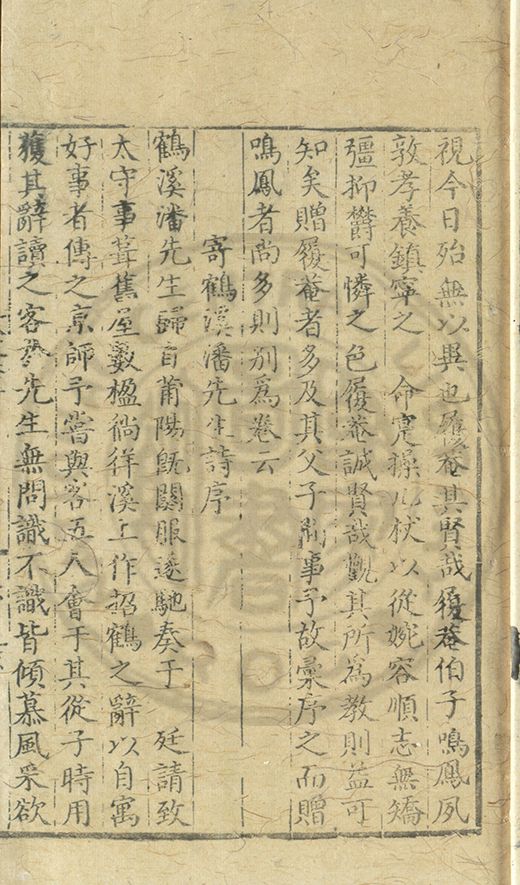 視今日殆無以異也履菴其賢哉履菴伯子鳴鳳夙
敦孝養鎮寧之　命寔操几杖以從婉容順志無矯
彊抑欝可憐之色履菴誠賢哉觀其所為教則益可
知矣贈履菴者多及其父子間事予故彙序之而贈
鳴鳳者尚多則别為卷云
寄鶴溪潘先生詩序
鶴溪潘先生歸自莆陽旣闋服遂馳奏于　廷請致
太守事葺舊屋數楹徜徉溪上作招鶴之辭以自寓
好事者傳之京師予嘗與客五人會于其從子時用
獲其辭讀之客於先生無問識不識皆傾慕風采欲